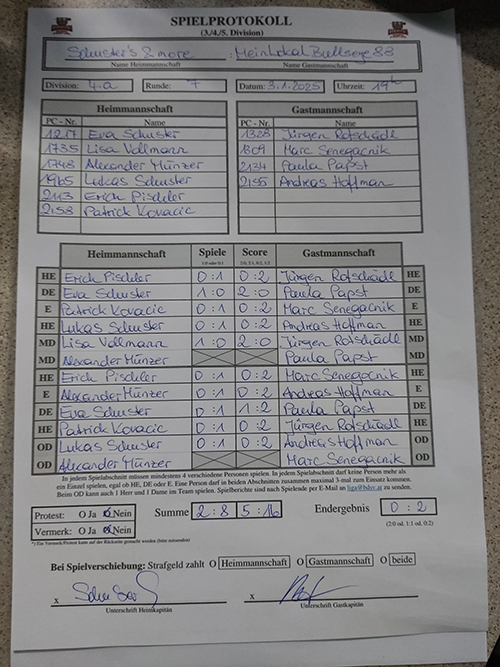 SPIELPROTOKOLL
(3./4./5. Division)
Schuster's & more : MeinLokal Bullseye 88
Name Heimmannschaft Name Gastmannschaft
Division: 4.a Runde: 7 Datum: 3.1.2025 Uhrzeit: 19h
Heimmannschaft Gastmannschaft
PC - Nr. Name PC - Nr. Name
1217 Eva Schuster 1328 Jürgen Rotschädl
1735 Lisa Vollmann 1809 Marc Senegacnik
1748 Alexander Münzer 2134 Paula Papst
1965 Lukas Schuster 2155 Andreas Hoffman
2113 Erich Pischler
2158 Patrick Kovacic
Heimmannschaft Spiele Score Gastmannschaft
HE Erich Pischler 0:1 0:2 Jürgen Rotschädl HE
DE Eva Schuster 1:0 2:0 Paula Papst DE
E Patrick Kovacic 0:1 0:2 Marc Senegacnik E
HE Lukas Schuster 0:1 0:2 Andreas Hoffman HE
MD Lisa Vollmann 1:0 2:0 Jürgen Rotschädl MD
MD Alexander Münzer Paula Papst MD
HE Erich Pischler 0:1 0:2 Marc Senegacnik HE
E Alexander Münzer 0:1 0:2 Andreas Hoffman E
DE Eva Schuster 0:1 1:2 Paula Papst DE
HE Patrick Kovacic 0:1 0:2 Jürgen Rotschädl HE
OD Lukas Schuster 0:1 0:2 Andreas Hoffman OD
OD Alexander Münzer Marc Senegacnik OD
In jedem Spielabschnitt müssen mindestens 4 verschiedene Personen spielen. In jedem Spielabschnitt darf keine Person mehr als
ein Einzel spielen, egal ob HE, DE oder E. Eine Person darf in beiden Abschnitten zusammen maximal 3-mal zum Einsatz kommen.
Beim OD kann auch 1 Herr und 1 Dame im Team spielen. Spielberichte sind nach Spielende per E-Mail an liga@bdsv.at zu senden.
Protest: O Ja O Nein Summe 2 : 8 5 : 16 Endergebnis 0 : 2
Vermerk: O Ja O Nein (2:0 od. 1:1 od. 0:2)
*) Ein Vermerk/Protest kann auf der Rückseite gemacht werden (bitte mitsenden)
Bei Spielverschiebung: Strafgeld zahlt O Heimmannschaft O Gastmannschaft O beide
x x
Unterschrift Heimkapitän Unterschrift Gastkapitän